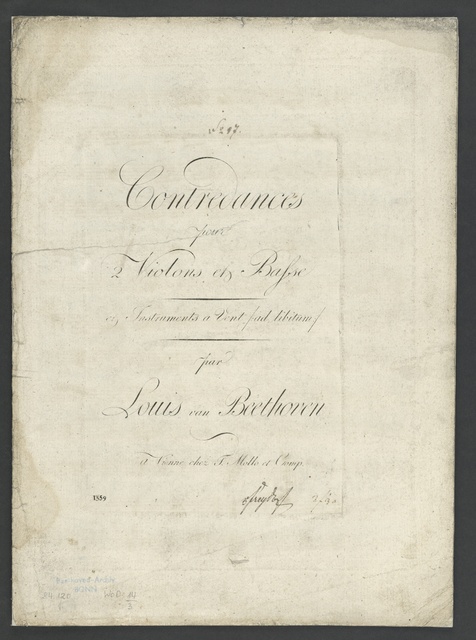 Contredances
pour
2 Violons et Basse
et Instruments a Vent /ad libitum/
par
Louis van Beethoven
à Vienne chez T. Mollo et Comp.
1859